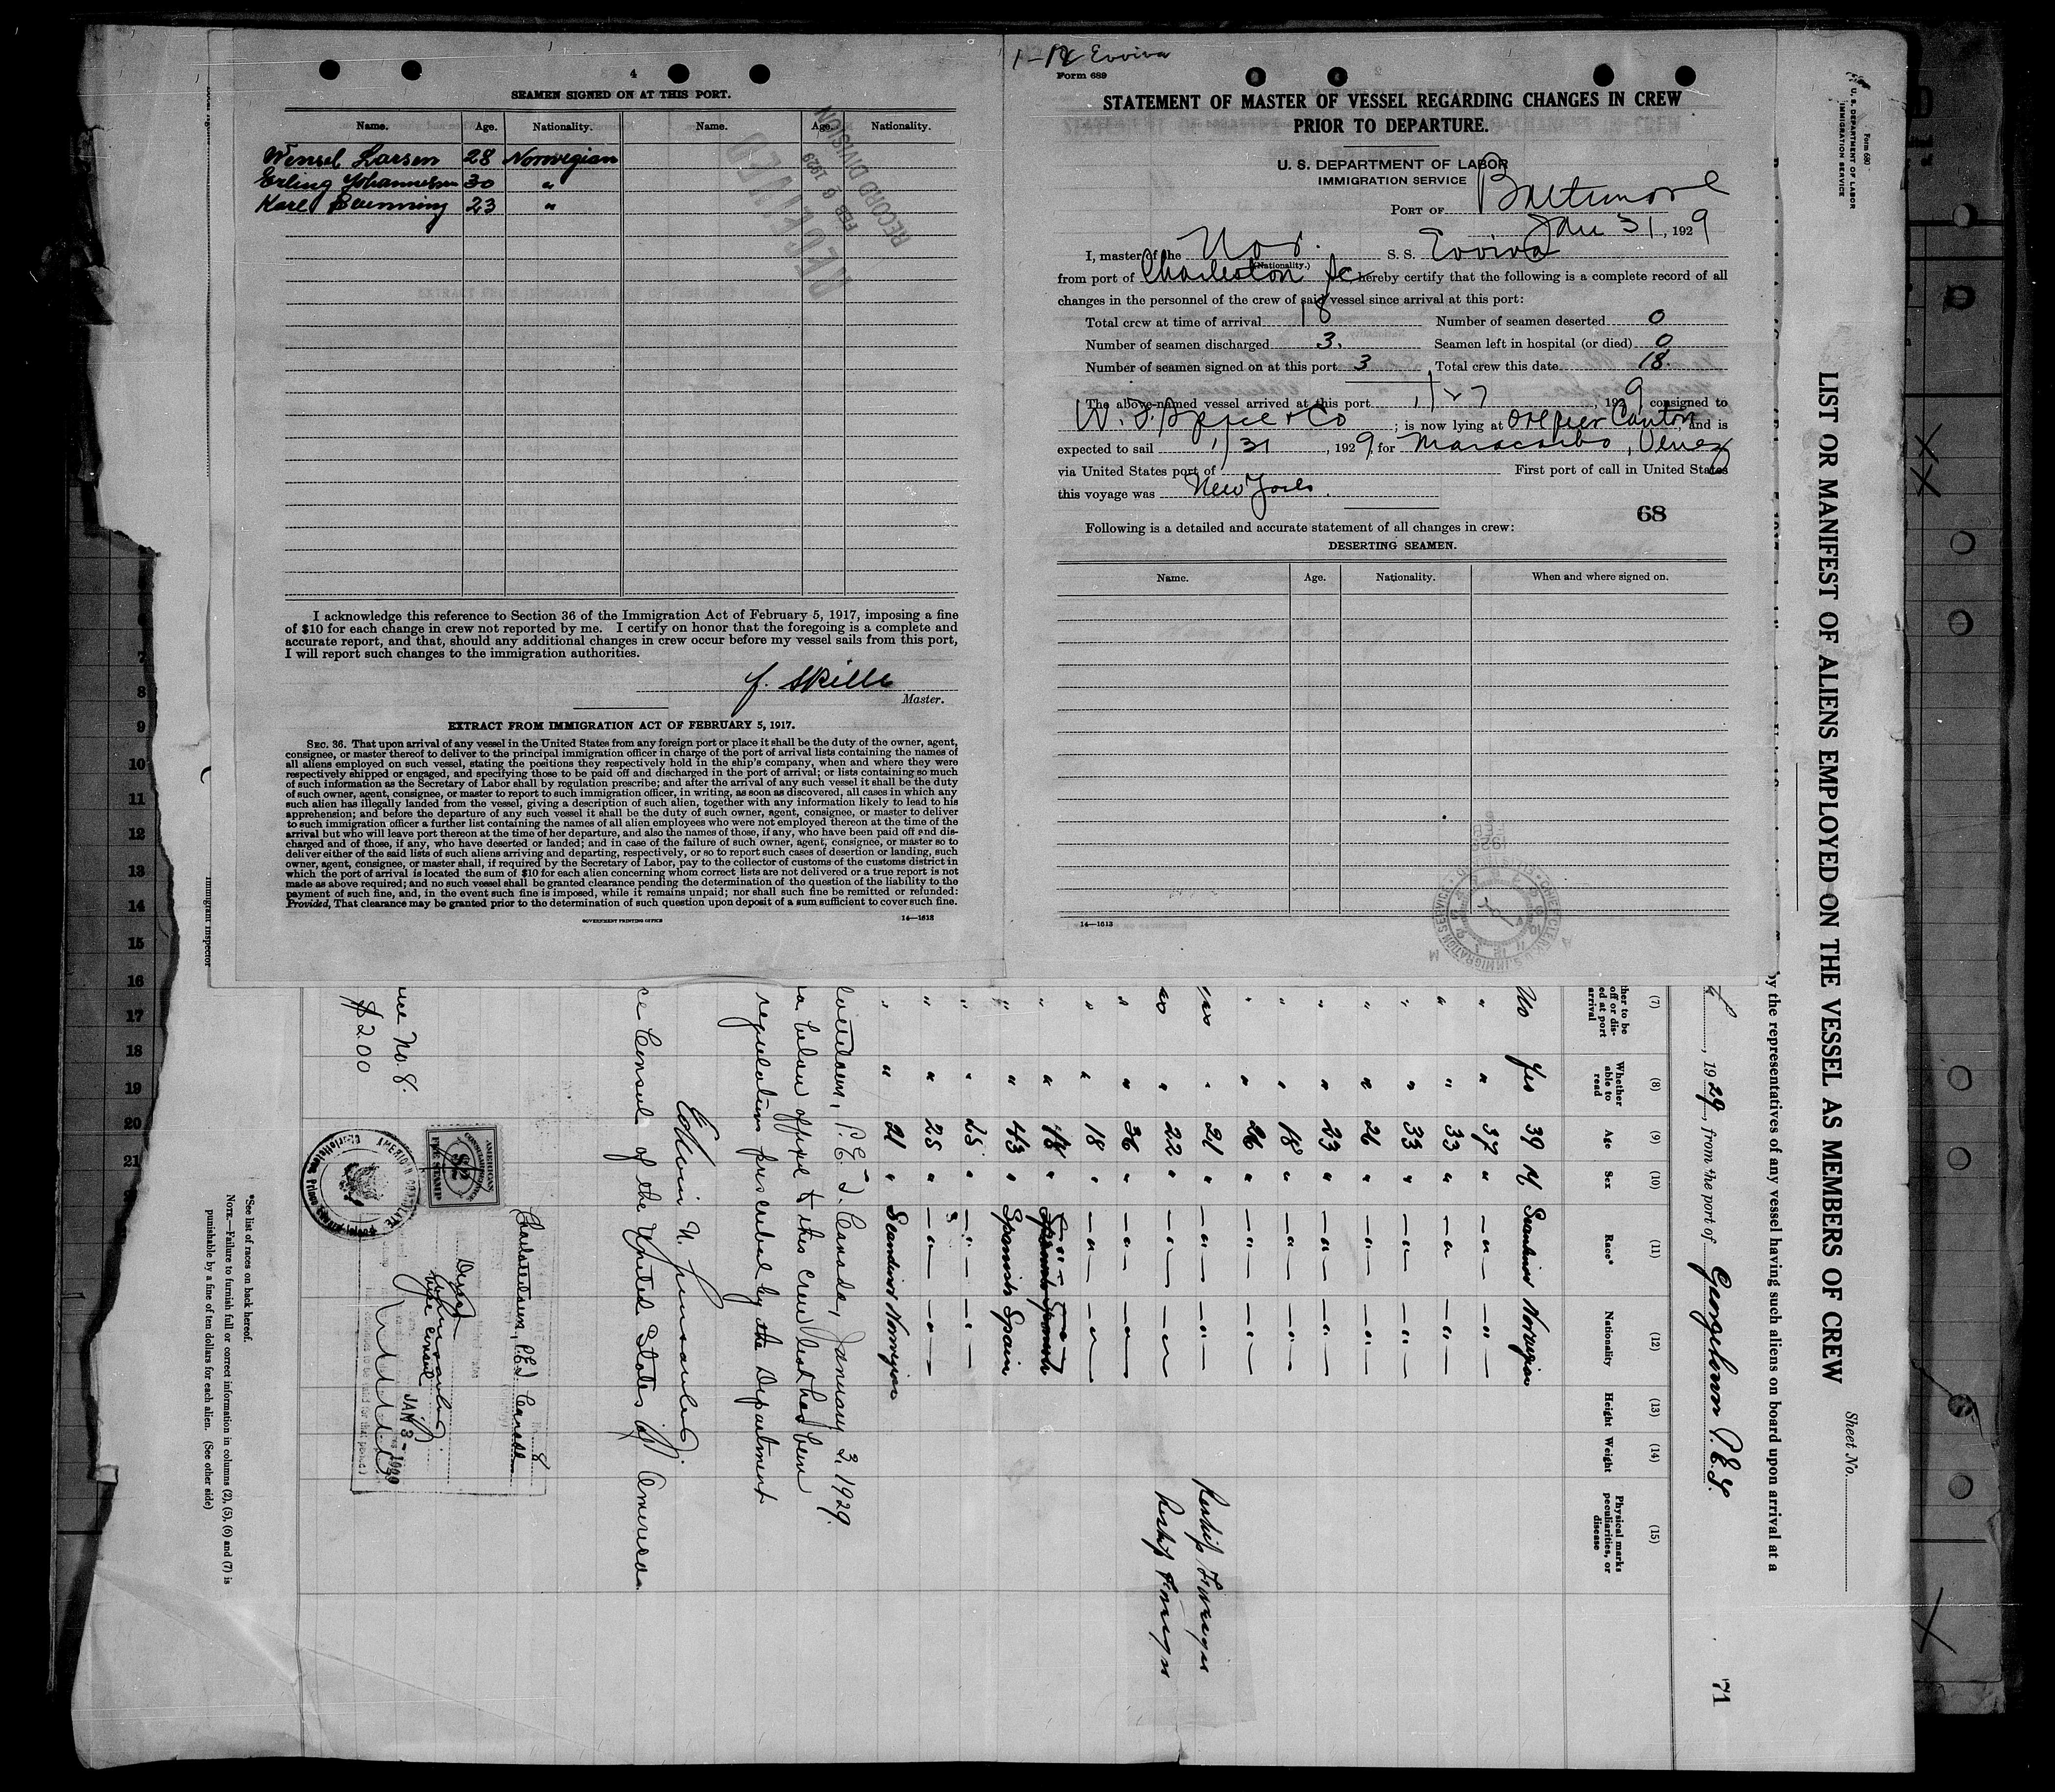 4
SEAMEN SIGNED ON AT THIS PORT.
Name. Age. Nationality. Name. Age. Nationality.
Wensel Larsen 28 Norwegian
Erling Johannesen 30 "
Karl 23 "
RECEIVED
FEB 6 1929
RECORD DIVISION
I acknowledge this reference to Section 36 of the Immigration Act of February 5, 1917, imposing a fine
of $10 for each change in crew not reported by me. I certify on honor that the foregoing is a complete and
accurate report, and that, should any additional changes in crew occur before my vessel sails from this port,
I will report such changes to the immigration authorities.
J. Skille
Master.
EXTRACT FROM IMMIGRATION ACT OF FEBRUARY 5, 1917.
SEC. 36. That upon arrival of any vessel in the United States from any foreign port or place it shall be the duty of the owner, agent,
consignee, or master thereof to deliver to the principal immigration officer in charge of the port of arrival lists containing the names of
all aliens employed on such vessel, stating the positions they respectively hold in the ship's company, when and where they were
respectively shipped or engaged, and specifying those to be paid off and discharged in the port of arrival; or lists containing so much
of such information as the Secretary of Labor shall by regulation prescribe; and after the arrival of any such vessel it shall be the duty
of such owner, agent, consignee, or master to report to such immigration officer, in writing, as soon as discovered, all cases in which any
such alien has illegally landed from the vessel, giving a description of such alien, together with any information likely to lead to his
apprehension; and before the departure of any such vessel it shall be the duty of such owner, agent, consignee, or master to deliver
to such immigration officer a further list containing the names of all alien employees who were not employed thereon at the time of the
arrival but who will leave port thereon at the time of her departure, and also the names of those, if any, who have been paid off and dis-
charged and of those, if any, who have deserted or landed; and in case of the failure of such owner, agent, consignee, or master so to
deliver either of the said lists of such aliens arriving and departing, respectively, or so to report such cases of desertion or landing, such
owner, agent, consignee, or master shall, if required by the Secretary of Labor, pay to the collector of customs of the customs district in
which the port of arrival is located the sum of $10 for each alien concerning whom correct lists are not delivered or a true report is not
made as above required; and no such vessel shall be granted clearance pending the determination of the question of the liability to the
payment of such fine, and, in the event such fine is imposed, while it remains unpaid; nor shall such fine be remitted or refunded:
Provided, That clearance may be granted prior to the determination of such question upon deposit of a sum sufficient to cover such fine.
GOVERNMENT PRINTING OFFICE 14—1613
Evviva
Form 689
STATEMENT OF MASTER OF VESSEL REGARDING CHANGES IN CREW
PRIOR TO DEPARTURE.
U. S. DEPARTMENT OF LABOR
IMMIGRATION SERVICE
PORT OF Baltimore
Jan 31, 1929
I, master of the Nor. S. S. Evviva
(Nationality.)
from port of Charleston SC hereby certify that the following is a complete record of all
changes in the personnel of the crew of said vessel since arrival at this port:
Total crew at time of arrival 18 Number of seamen deserted 0
Number of seamen discharged 3. Seamen left in hospital (or died) 0
Number of seamen signed on at this port 3 Total crew this date 18.
The above-named vessel arrived at this port 1/27, 1929 consigned to
W. & Co; is now lying at Ore pier Canton, and is
expected to sail 1/31, 1929, for Maracaibo, Venez
via United States port of First port of call in United States
this voyage was New York.
68
Following is a detailed and accurate statement of all changes in crew:
DESERTING SEAMEN.
Name. Age. Nationality. When and where signed on.
14—1613
Form 680
U. S. DEPARTMENT OF LABOR
IMMIGRATION SERVICE
LIST OR MANIFEST OF ALIENS EMPLOYED ON THE VESSEL AS MEMBERS OF CREW
Sheet No.
by the representatives of any vessel having such aliens on board upon arrival at a
, 1929, from the port of Georgetown P.E.I.
71
(7) (8) (9) (10) (11) (12) (13) (14) (15)
Whether able to read Age Sex Race* Nationality Height Weight Physical marks, peculiarities, or disease
No Yes 39 M Scandinav Norwegian
" " 37 " — " — — " —
" " 33 " — " — — " —
" " 33 " — " — — " —
" " 26 " — " — — " —
" " 23 " — " — — " —
" " 18 " — " — — " —
" " 26 " — " — — " —
" 21 " — " — — " —
" 22 " — " — — " —
" " 36 " — " — — " —
" " 18 " — " — — " —
" " 18 "
" " 43 " Spanish Spain
" " 25 " — " — — " —
" " 25 " — " — — " —
" " 21 " Scandinav Norwegian
Charlottetown, P.E.I. Canada, January 3, 1929.
below affixed to this crew list has been
regulation prescribed by the Department
Edwin N.
ce Consul of the United States of America.
Charlottetown, P.E.I. Canada
Vice Consul
JAN 3- 1929
AMERICAN
CONSULAR SERVICE
$2
FEE STAMP
AMERICAN CONSULATE
No. 8.
$2.00
*See list of races on back hereof.
NOTE.—Failure to furnish full or correct information in columns (2), (5), (6) and (7) is
punishable by a fine of ten dollars for each alien. (See other side)
Immigrant Inspector
7
8
9
10
11
12
13
14
15
16
17
18
19
20
21